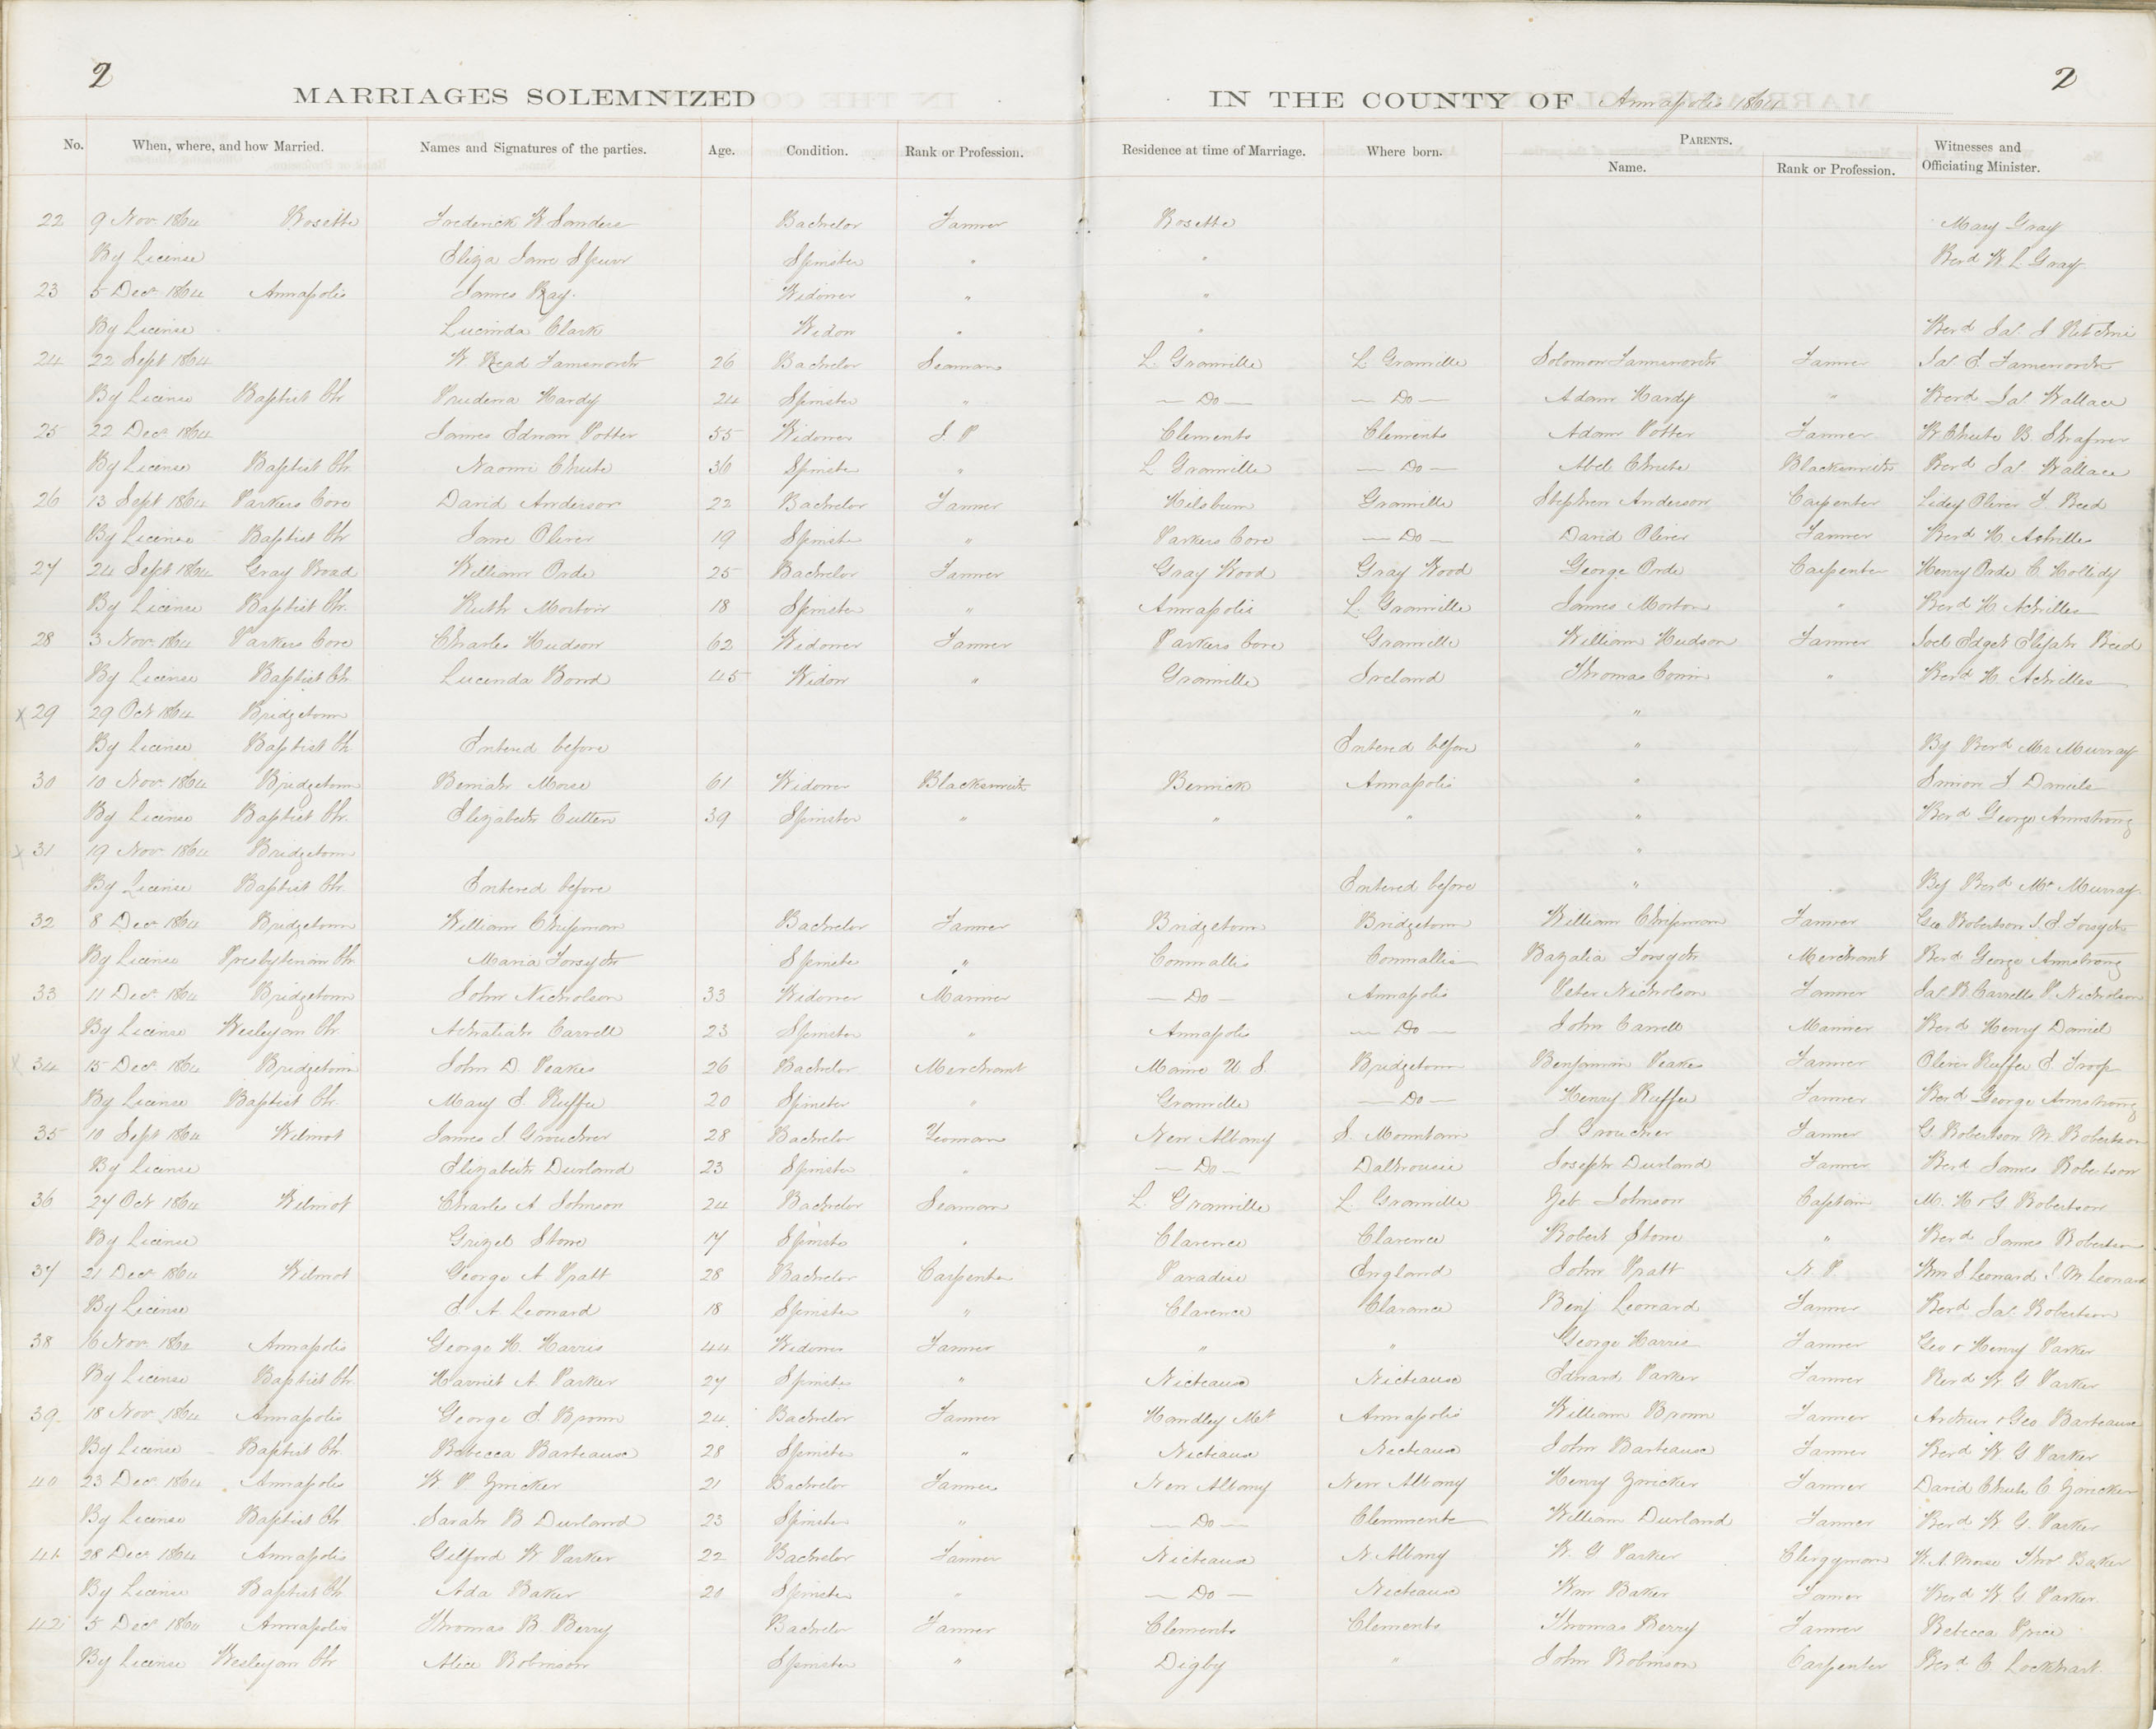 2
2
MARRIAGES SOLEMNIZED IN THE COUNTY OF Annapolis 1864
No. When, where, and how Married. Names and Signatures of the parties. Age. Condition. Rank or Profession. Residence at time of Marriage. Where born. PARENTS. Name. Rank or Profession. Witnesses and Officiating Minister.
22 9 Nov. 1864 Rosette Frederick W Sanders Bachelor Farmer Rosette Mary Gray
By License Eliza Jane Spurr Spinster " " Revd W L Gray
23 5 Decr 1864 Annapolis James Ray. Widower " "
By License Lucinda Clark Widow " " Revd Jas. J Ritchie
24 22 Sept 1864 W. Read Farnsworth 26 Bachelor Seaman L. Granville L Granville Solomon Farnsworth Farmer Jas. E. Farnsworth
By License Baptist Ch Prudena Hardy 24 Spinster " — Do — — Do — Adam Hardy " Revd Jas. Wallace
25 22 Decr 1864 James Edman Potter 55 Widower J. P Clements Clements Adam Potter Farmer W Chute B. Shafner
By License Baptist Ch. Naomi Chute 36 Spinster " L Granville — Do — Abel Chute Blacksmith Revd Jas Wallace
26 13 Sept 1864 Parkers Cove David Anderson 22 Bachelor Farmer Hilsburn Granville Stephen Anderson Carpenter Lidey Oliver J. Reed
By License Baptist Ch Jane Oliver 19 Spinster " Parkers Cove — Do — David Oliver Farmer Revd H. Achilles
27 24 Sept 1864 Gray Road William Orde 25 Bachelor Farmer Gray Wood Gray Wood George Orde Carpenter Henry Orde C Hollidy
By License Baptist Ch. Ruth Morton 18 Spinster " Annapolis L. Granville James Morton " Revd H Achilles
28 3 Novr 1864 Parkers Cove Charles Hudson 62 Widower Farmer Parkers Cove Granville William Hudson Farmer Joel Edget Elijah Reed
By License Baptist Ch Lucinda Bond 45 Widow " Granville Ireland Thomas " Revd H. Achilles
x 29 29 Oct 1864 Bridgetown "
By License Baptist Ch Entered before Entered before " By Revd Mr Murray
30 10 Novr 1864 Bridgetown Beniah Morse 61 Widower Blacksmith Berwick Annapolis " Simion J Daniels
By License Baptist Ch. Elizabeth Cutten 39 Spinster " " " " Revd George Armstrong
x 31 19 Nov. 1864 Bridgetown "
By License Baptist Ch. Entered before Entered before " By Revd Mr Murray
32 8 Decr 1864 Bridgetown William Chipman Bachelor Farmer Bridgetown Bridgetown William Chipman Farmer Geo Robertson J. E. Forsyth
By License Presbyterian Ch Maria Forsyth Spinster " Cornwallis Cornwallis Bazalia Forsyth Merchant Revd George Armstrong
33 11 Decr 1864 Bridgetown John Nicholson 33 Widower Mariner — Do — Annapolis Peter Nicholson Farmer Jas. B Carrell P. Nicholson
By License Wesleyan Ch. Carrell 23 Spinster " Annapolis — Do — John Carrell Mariner Revd Henry Daniel
x 34 15 Decr 1864 Bridgetown John D. Peakes 26 Bachelor Merchant Maine U S. Bridgetown Benjamin Peakes Farmer Oliver Ruffee E. Troop
By License Baptist Ch. Mary E. Ruffee 20 Spinster " Granville — Do — Henry Ruffee Farmer Revd George Armstrong
35 10 Sept 1864 Wilmot James S Groucher 28 Bachelor Yeoman New Albany S. Mountain J Groucher Farmer G. Robertson M. Robertson
By License Elizabeth Durland 23 Spinster " — Do — Dalhousie Joseph Durland Farmer Revd James Robertson
36 27 Oct 1864 Wilmot Charles A Johnson 24 Bachelor Seaman L. Granville L. Granville Zeb Johnson Captain M. H & G Robertson
By License Grizel Stone 17 Spinster " Clarence Clarence Robert Stone " Revd James Robertson
37 21 Decr 1864 Wilmot George A Pratt 28 Bachelor Carpenter Paradise England John Pratt N. P. Wm S. Leonard J. M Leonard
By License E. A. Leonard 18 Spinster " Clarence Clarence Benj Leonard Farmer Revd Jas. Robertson
38 16 Nov. 1864 Annapolis George H. Harris 44 Widower Farmer " " George Harris Farmer Geo & Henry Parker
By License Baptist Ch Harriet A. Parker 27 Spinster " Nicteause Nicteause Edward Parker Farmer Revd W G Parker
39 18 Nov. 1864 Annapolis George E. Brown 24 Bachelor Farmer Handley Mt Annapolis William Brown Farmer Arthur & Geo Barteause
By License Baptist Ch. Rebecca Barteause 28 Spinster " Nicteause Nicteause John Barteause Farmer Revd W. G Parker
40 23 Decr 1864 Annapolis W. P. Zwicker 21 Bachelor Farmer New Albany New Albany Henry Zwicker Farmer David Chute C. Zwicker
By License Baptist Ch Sarah B Durland 23 Spinster " — Do — Clemments William Durland Farmer Revd W G. Parker
41 28 Decr 1864 Annapolis Gilford W Parker 22 Bachelor Farmer Nicteause N Albany W. G Parker Clergyman W. A Morse Thos Baker
By License Baptist Ch Ada Baker 20 Spinster " — Do — Nicteause Wm Baker Farmer Revd W. G. Parker
42 5 Decr 1864 Annapolis Thomas B. Berry Bachelor Farmer Clements Clements Thomas Berry Farmer Rebecca Price
By License Wesleyan Ch Alice Robinson Spinster " Digby " John Robinson Carpenter Revd C. Lockhart